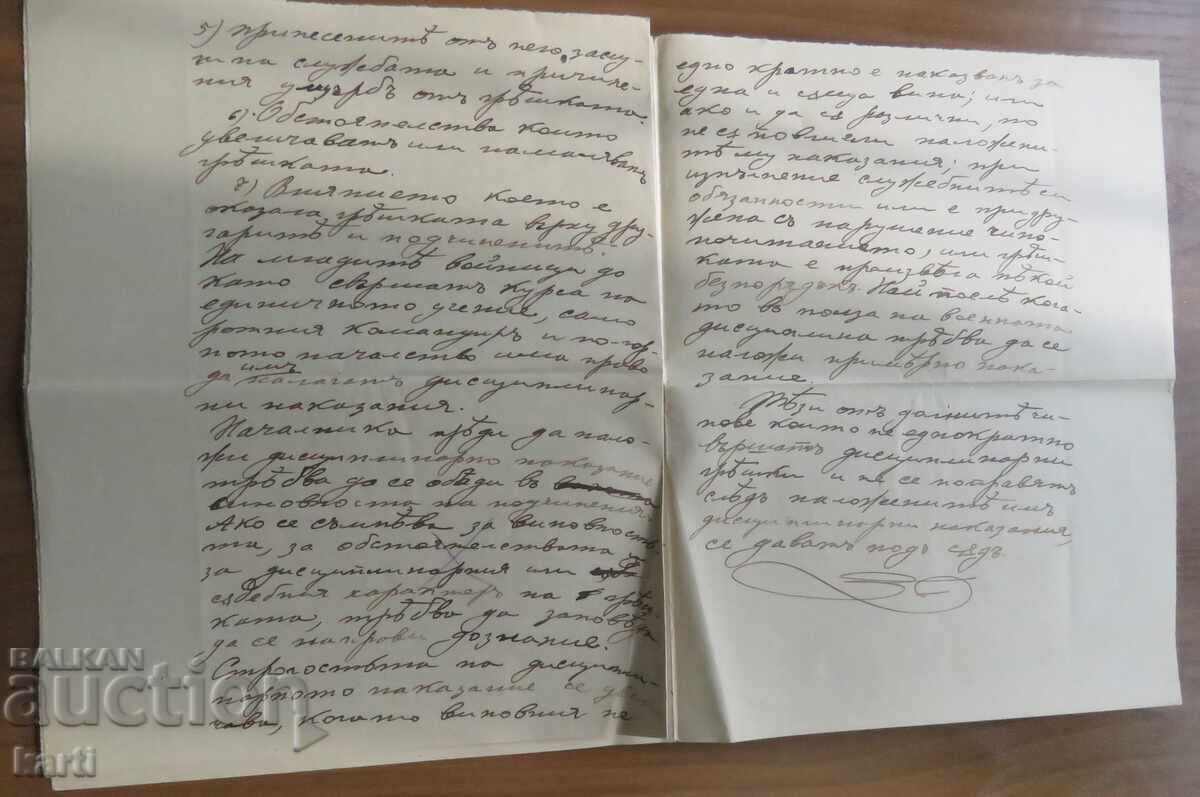 5) принесенитѣ отъ него заслу-
ги на службата и причине-
ния ущърбъ отъ грѣшката.
6) Обстоятелства които
увеличаватъ или намаляватъ
грѣшката.
7) Влиянието което е
оказала грѣшката върху дру-
гаритѣ и подчиненитѣ.
На младитѣ войници до
като свършатъ курса на
единичното учение, само
ротния командиръ и по-гор-
ното началство има право
да имъ налагатъ дисциплинар-
ни наказания.
Началника прѣди да нало-
жи дисциплинарно наказание
трѣбва да се убѣди въ
виновностьта на подчинения.
Ако се съмнѣва за виновность-
та, за обстоятелствата и
за дисциплинарния или
сѫдебния характеръ на грѣш-
ката, трѣбва да заповѣда
да се направи дознание.
Строгостьта на дисципли-
нарното наказание се уве-
личава, когато виновния не
еднократно е наказванъ за
една и сѫща вина; или
ако и да сѫ различни, но
не сѫ повлияли наложени-
тѣ му наказания; при
изпълнение служебнитѣ си
обязанности или е придру-
жена съ нарушение чино-
почитанието; или грѣш-
ката е произвѣла нѣкой
безпорядъкъ. Най послѣ кога-
то въ полза на военната
дисциплина трѣбва да се
наложи примѣрно нака-
зание.
Тѣзи отъ долнитѣ чи-
нове които не еднократно
вършатъ дисциплинарни
грѣшки и не се поправятъ
слѣдъ наложенитѣ имъ
дисциплинарни наказания,
се даватъ подъ сѫдъ.
BALKAN
auction
karti